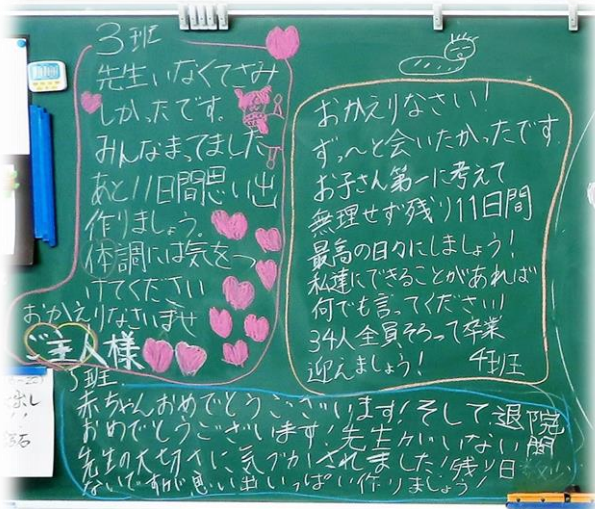 3班
先生いなくてさみ
しかったです。
みんなまってました
あと11日間思い出
作りましょう。
体調には気をつ
けてください
おかえりなさいませ
ご主人様
おかえりなさい!
ずっ〜と会いたかったです
お子さん第一に考えて
無理せず残り11日間
最高の日々にしましょう!
私達にできることがあれば
何でも言ってください!
34人全員そろって卒業
迎えましょう! 4班
5班
赤ちゃんおめでとうございます!そして退院
おめでとうございます!先生がいない間
先生の大切さに気づかされました!残り日
ないですが思い出いっぱい作りましょう!